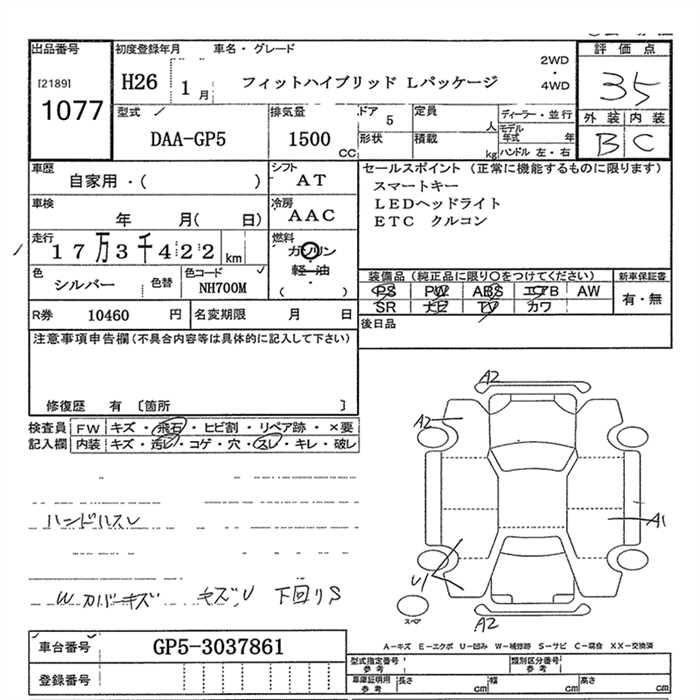 出品番号 初度登録年月 車名・グレード 評価点
[2189] 1077
H26 1月 フィットハイブリッド Lパッケージ 2WD・4WD
35
型式 排気量 ドア 定員 ディーラー・並行 外装 内装
DAA-GP5 1500CC 5 人 モデル年式 年 B C
形状 積載 kg ハンドル 左・右
車歴 シフト セールスポイント(正常に機能するものに限ります)
自家用・( ) AT スマートキー
車検 冷房 LEDヘッドライト
年 月( 日) AAC ETC クルコン
走行 燃料
17万3千422km ガソリン・軽油・( )
色 色替 色コード 装備品(純正品に限り○をつけてください) 新車保証書
シルバー NH700M PS PW ABS エアB AW 有・無
SR ナビ TV カワ
R券 10460円 名変期限 月 日 後日品
注意事項申告欄(不具合内容等は具体的に記入して下さい)
修復歴 有 〔箇所 〕
検査員 FW キズ・飛石・ヒビ割・リペア跡・×要
記入欄 内装 キズ・汚レ・コゲ・穴・スレ・キレ・破レ
ハンドルスレ
W カバーキズ キズU 下回りS
A2
A2
A1
U1
スペア
A2
A-キズ E-エクボ U-凹み W-補修跡 S-サビ C-腐食 XX-交換済
車台番号 GP5-3037861
登録番号
型式指定番号 参考 類別区分番号 参考
車庫証明用 参考 長さ cm 幅 cm 高さ cm